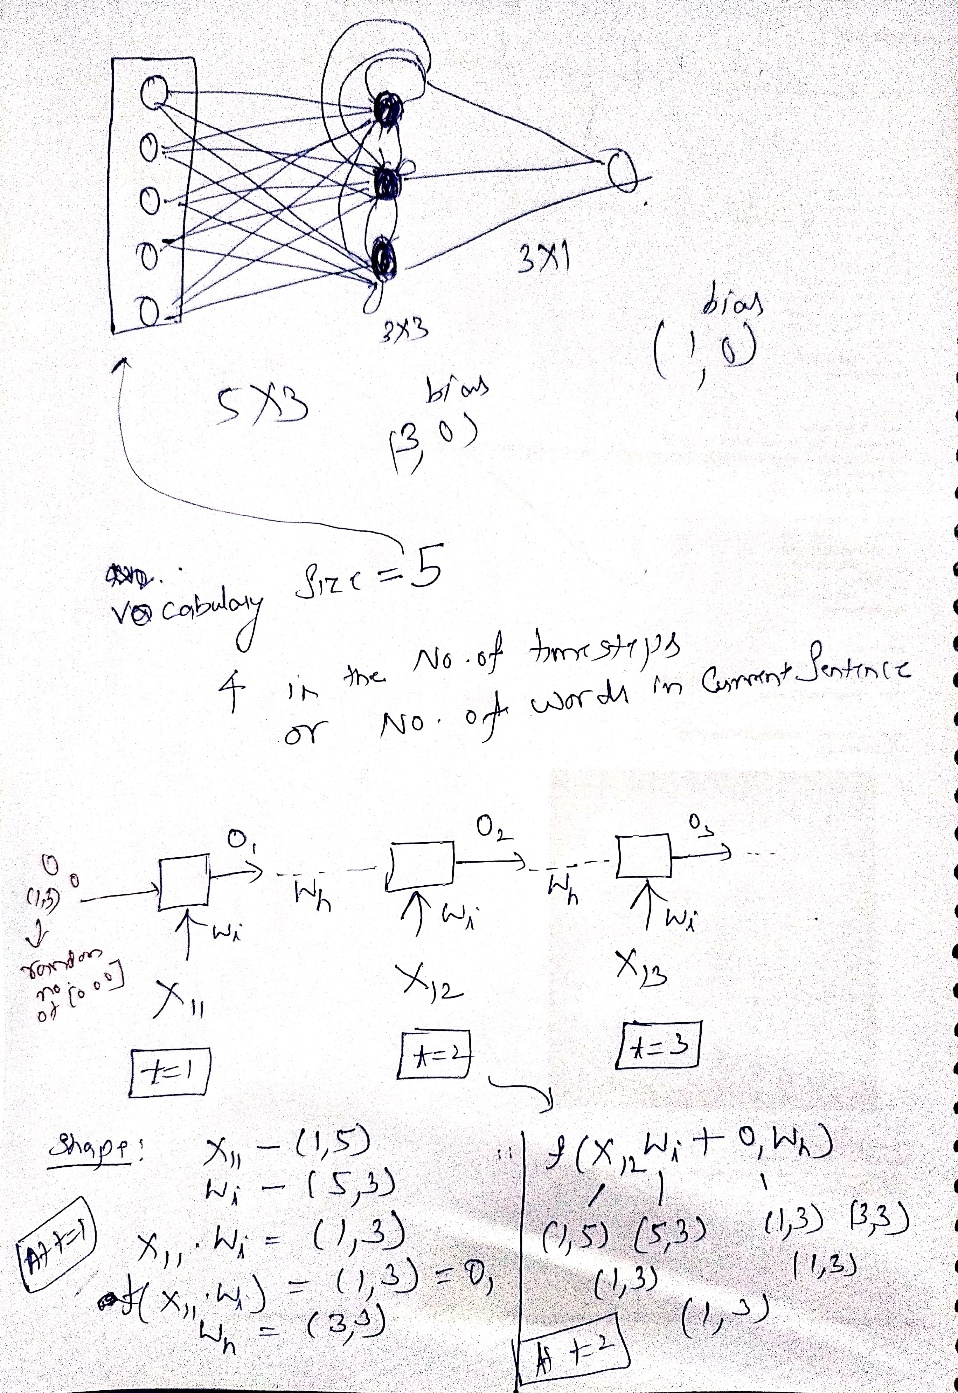 3X1
3X3
bias
(1,0)
5X3
bias
(3,0)
Vocabulary Size = 5
4 in the No. of timesteps
or No. of words in Current Sentence
O1 O2 O3
O0
(1,3)
random
no
of [0 0 0]
Wh Wh
Wi Wi Wi
X11 X12 X13
t=1 t=2 t=3
Shape:
X11 - (1,5)
Wi - (5,3)
At t=1
X11 . Wi = (1,3)
f(X11.Wi) = (1,3) = O1
Wh = (3,3)
f(X12 Wi + O1 Wh)
(1,5) (5,3) (1,3) (3,3)
(1,3) (1,3)
(1,3)
At t=2